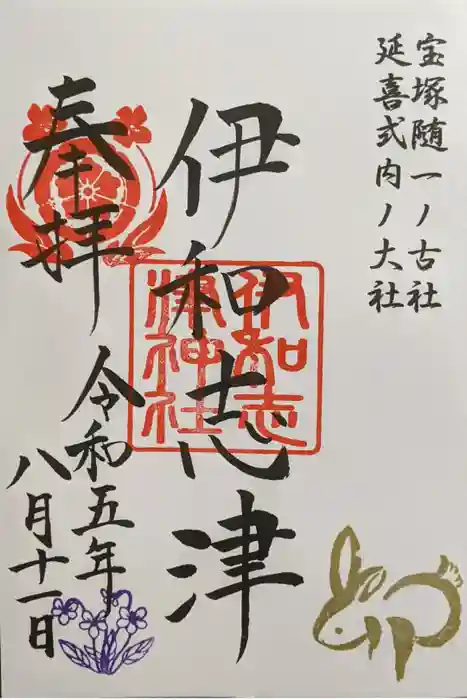 宝塚随一ノ古社
延喜式内ノ大社
伊和志津
伊和志
津神社
奉拝
令和五年
八月十一日
卯